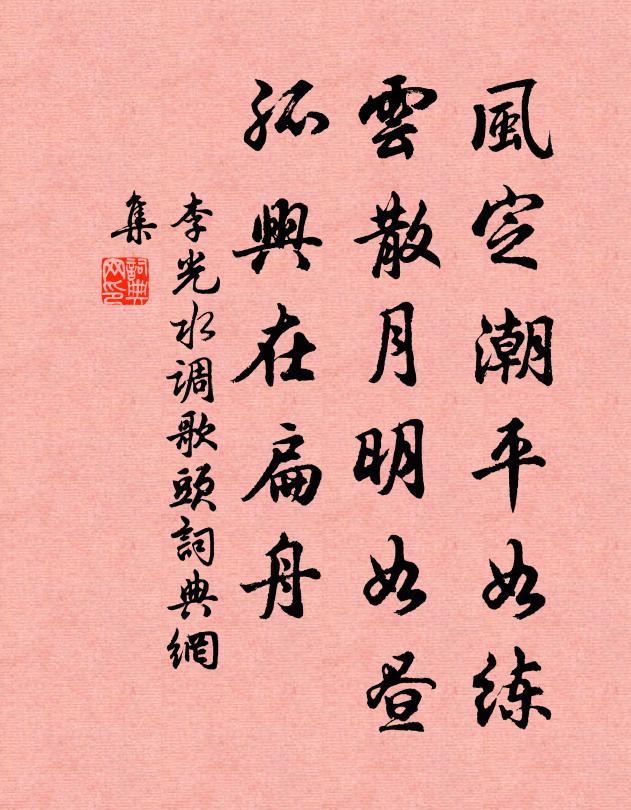 風定潮平如练
雲散月明如昼
孤興在扁舟
李光水调歌頭詞典網
集
詞典
网印